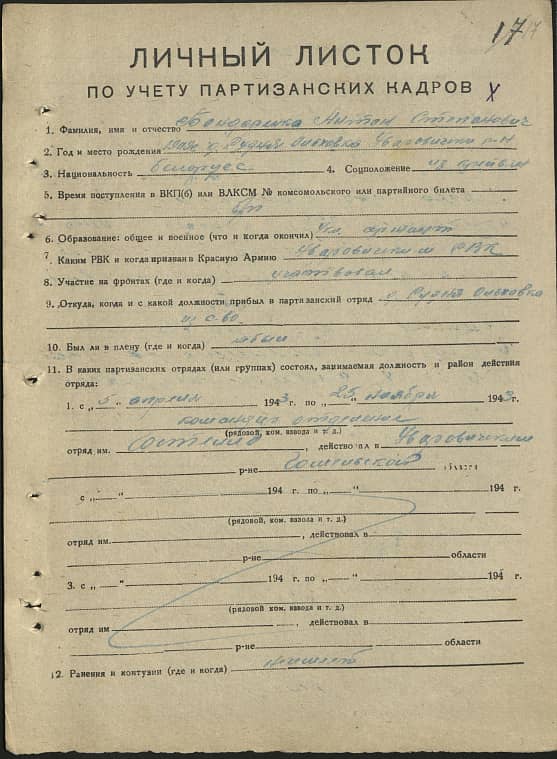 17
ЛИЧНЫЙ ЛИСТОК
ПО УЧЕТУ ПАРТИЗАНСКИХ КАДРОВ
1. Фамилия, имя и отчество Антон Степанович
2. Год и место рождения д. Рудня Ольховка Уваровичский р-н
3. Национальность белорус 4. Соцположение из крестьян
5. Время поступления в ВКП(б) или ВЛКСМ № комсомольского или партийного билета
б/п
6. Образование: общее и военное (что и когда окончил) 4 кл.
7. Каким РВК и когда призван в Красную Армию Уваровичским РВК
8. Участие на фронтах (где и когда) участвовал
9. Откуда, когда и с какой должности прибыл в партизанский отряд д. Рудня Ольховка
10. Был ли в плену (где и когда)
11. В каких партизанских отрядах (или группах) состоял, занимаемая должность и район действия
отряда:
1. с „ 5 “ апреля 1943 г. по „ 25 “ ноября 1943 г.
командир отделения
(рядовой, ком. взвода и т. д.)
отряд им. , действовал в Уваровичском
р-не Гомельской области
с „ “ 194 г. по „ “ 194 г.
(рядовой, ком. взвода и т. д.)
отряд им. , действовал в
р-не области
3. с „ “ 194 г. по „ “ 194 г.
(рядовой, ком. взвода и т. д.)
отряд им. , действовал в
р-не области
12. Ранения и контузии (где и когда)